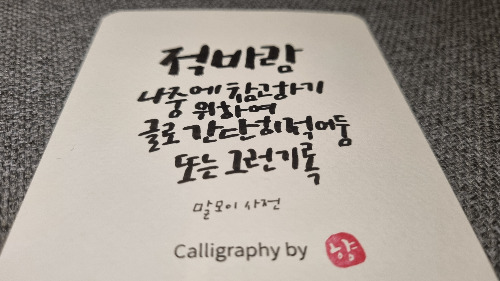 적바람
나중에 참고하기
위하여
글로 간단히 적어둠
또는 그런 기록
말모이 사전
Calligraphy by